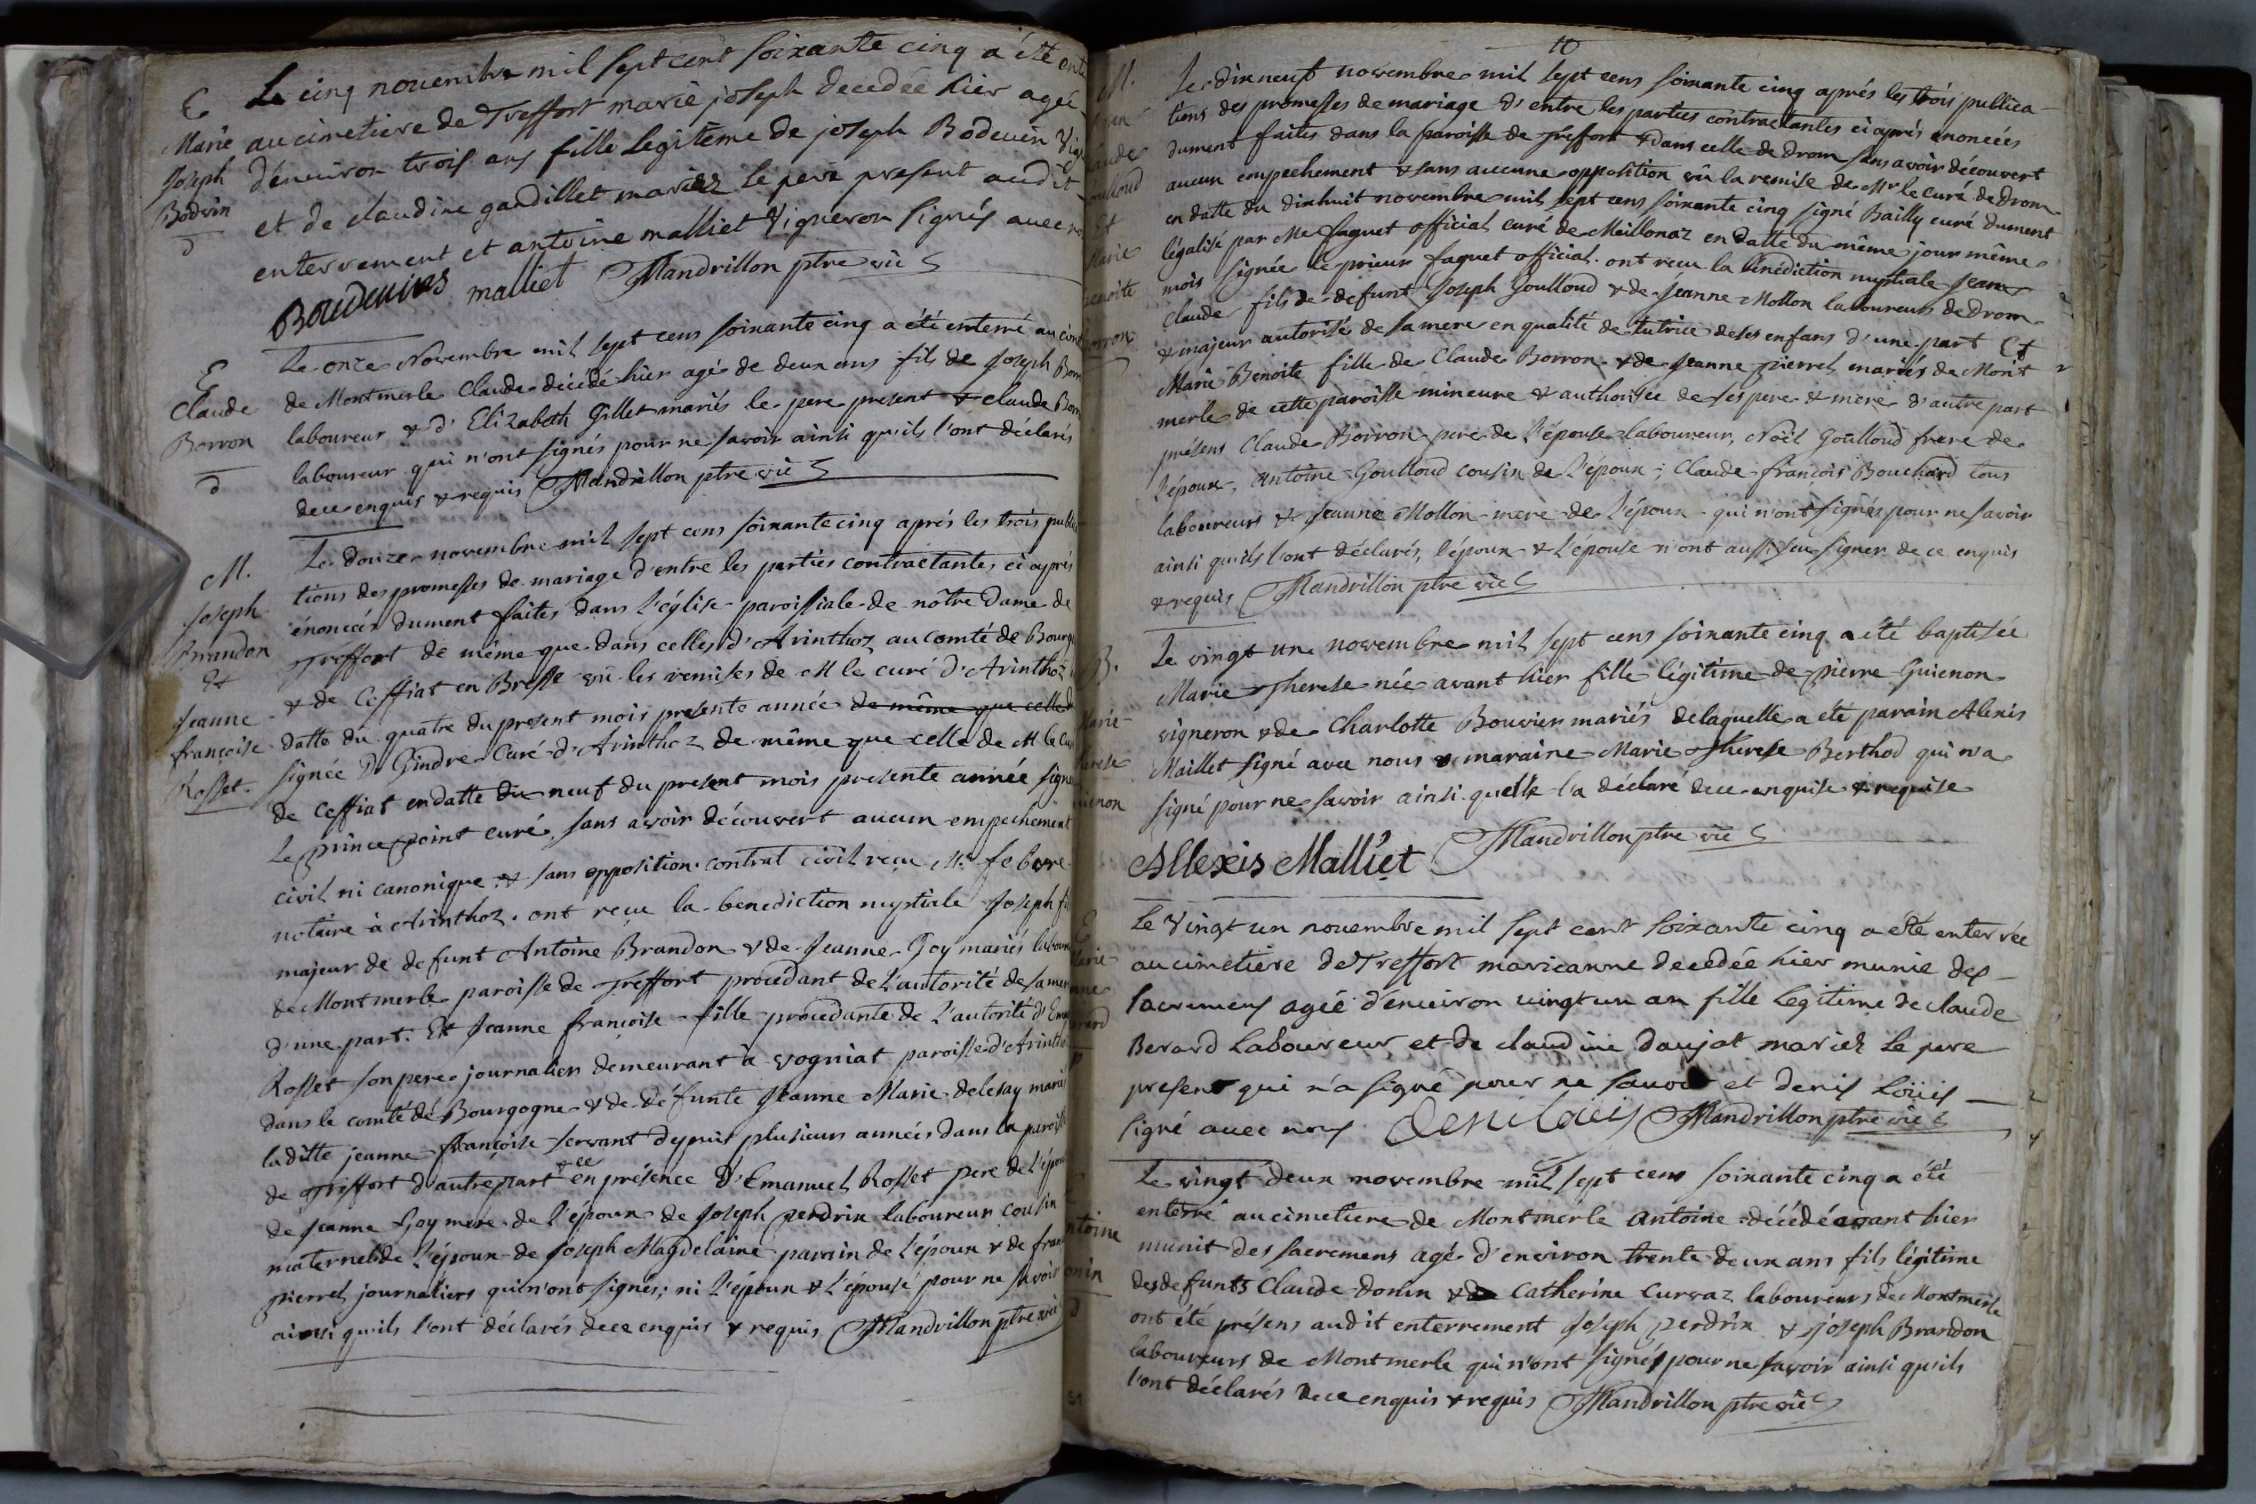 E
Marie
Joseph
Bodvin
d
Le cinq novembre mil sept cent soixante cinq a été
au cimetiere de Treffort marie joseph decedée hier agée
d'environ trois ans fille legitême de joseph Bodevin
et de claudine gandillet mariez le pere present audit
enterrement et antoine malliet vigneron signés avec
Baudevins malliet Mandrillon ptre vic
E
Claude
Borron
d
Le onze Novembre mil sept cens soixante cinq a été enterré au
de Montmerle Claude décédé hier agé de deux ans fils de Joseph
laboureur & d'Elizabeth Gillet mariés le pere present & claude
laboureur qui n'ont signés pour ne savoir ainsi qu'ils l'ont déclarés
de ce enquis & requis Mandrillon ptre vic
M.
Joseph
Brandon
et
Jeanne
françoise
Rosset
Le douze novembre mil sept cens soixante cinq aprés les trois
tions des promesses de mariage d'entre les parties contractantes ci aprés
énoncées dument faites dans l'église paroissiale de nôtre Dame de
Treffort de même que dans celles d'Arinthoz au Comté de
& de Ceffiat en Bresse vû les remises de M le curé d'Arinthoz
datte du quatre du present mois presente année de même que celle
signée D Gindre Curé d'Arinthoz de même que celle de M le
de Ceffiat en datte du neuf du present mois presente année
Le prince point curé, sans avoir découvert aucun empechement
civil ni canonique & sans opposition. contrat civil reçu Me febvre
notaire à Arinthoz. ont reçu la benediction nuptiale Joseph
majeur de defunt Antoine Brandon & de Jeanne Goy mariés
de Montmerle paroisse de Treffort procedant de l'autorité de sa
d'une part. Et Jeanne françoise fille procedante de l'autorité d'
Rosset son pere journalier demeurant à vogniat paroisse
dans le comté de Bourgogne & de défunte Jeanne Marie delesay
laditte jeanne françoise servant depuis plusieurs années dans la
de Treffort d'autre part & ce en présence d'Emanuel Rosset pere de
de Jeanne Goy mere de l'époux de Joseph perdrix laboureur cousin
maternel de l'époux de Joseph Magdelaine parain de l'époux & de
pierrel journaliers qui n'ont signés, ni l'époux & l'épouse pour ne savoir
ainsi qu'ils l'ont déclarés de ce enquis & requis Mandrillon ptre vic
10
M.
Et
Marie
Le dix neuf novembre mil sept cens soixante cinq aprés les trois publica
tions des promesses de mariage d'entre les parties contractantes ci aprés enoncées
dument faites dans la paroisse de Treffort & dans celle de drom sans avoir découvert
aucun empechement & sans aucune opposition vû la remise de Mr le curé de drom
en datte du dixhuit novembre mil sept cens soixante cinq signé Bailly curé dument
légalisé par Me faguet official curé de Meillonaz en datte du même jour même
mois signée le prieur faguet official. ont reçu la bénédiction nuptiale Jean
Claude fils de defunt Joseph Goulloud & de Jeanne Mollon laboureurs de drom
& majeur autorisé de sa mere en qualité de tutrice de ses enfans d'une part Et
Marie Benoite fille de Claude Borron & de Jeanne pierrel mariés de Mont
merle de cette paroisse mineure & authorisée de ses pere & mere d'autre part
présens Claude Borron pere de l'épouse laboureur, Noël Goulloud frere de
l'époux, Antoine Goulloud cousin de l'époux; Claude françois Bouchard tous
laboureurs & Jeanne Mollon mere de l'époux qui n'ont signés pour ne savoir
ainsi qu'ils l'ont déclarés, l'époux & l'épouse n'ont aussi seu signer de ce enquis
& requis Mandrillon ptre vic
B.
Marie
Le vingt un novembre mil sept cens soixante cinq a été baptisée
Marie Therese née avant hier fille légitime de pierre Guienon
vigneron & de Charlotte Bouvier mariés de laquelle a été parain Alexis
Maillet signé avec nous & maraine Marie Therese Berthod qui n'a
signé pour ne savoir ainsi quelle l'a déclaré de ce enquise & requise
Allexis Malliet Mandrillon ptre vic
E
Le vingt un novembre mil sept cent soixante cinq a été enterrée
au cimetiere de Treffort marieanne decedée hier munie des
sacremens agée d'environ vingt un an fille legitime de claude
Berard Laboureur et de claudine daujat mariez le pere
present qui n'a signé pour ne savoir et denis Loüis
signé avec nous Denis Loüis Mandrillon ptre vic
Le vingt deux novembre mil sept cens soixante cinq a été
enterré au cimetiere de Montmerle Antoine décédé avant hier
munit des sacremens agé d'environ trente deux ans fils légitime
des defunts Claude donin & de Catherine Curvaz laboureurs de Montmerle
ont été présens audit enterrement Joseph perdrix & joseph Brandon
laboureurs de Montmerle qui n'ont signés pour ne savoir ainsi qu'ils
l'ont déclarés de ce enquis & requis Mandrillon ptre vic